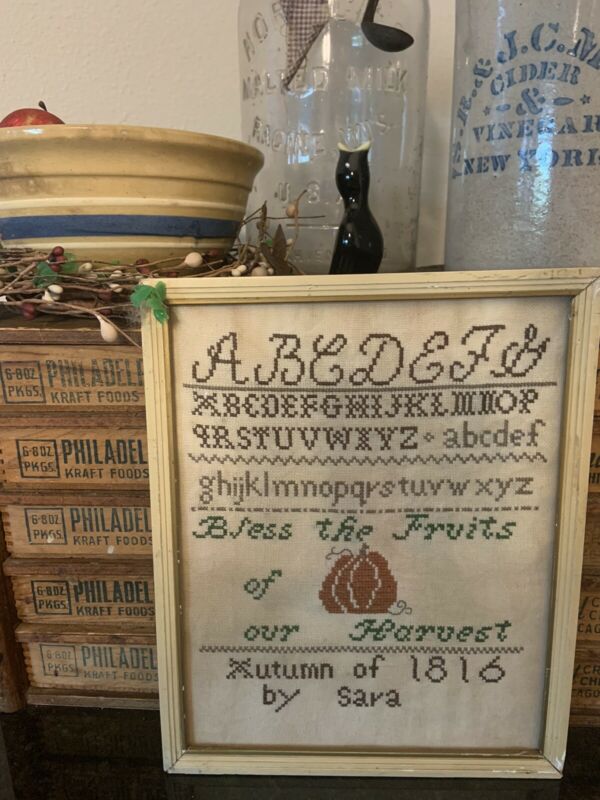 HOR
MALTED MILK
RACINE, WIS.
U.S.A.
S.R.& J.C.M
CIDER
&
VINEGAR
NEW YORK
6-8 OZ. PHILADEL
PKGS. KRAFT FOODS
6-8 OZ. PHILADEL
PKGS. KRAFT FOODS
6-8 OZ. PHILADEL
PKGS. KRAFT FOODS
6-8 OZ. PHILADEL
PKGS. KRAFT FOODS
6-8 OZ. PHILADEL
PKGS. KRAFT FOODS
ABCDEF&
ABCDEFGHIJKLMNOP
QRSTUVWXYZ abcdef
ghijklmnopqrstuvwxyz
Bless the Fruits
of
our Harvest
Autumn of 1816
by Sara